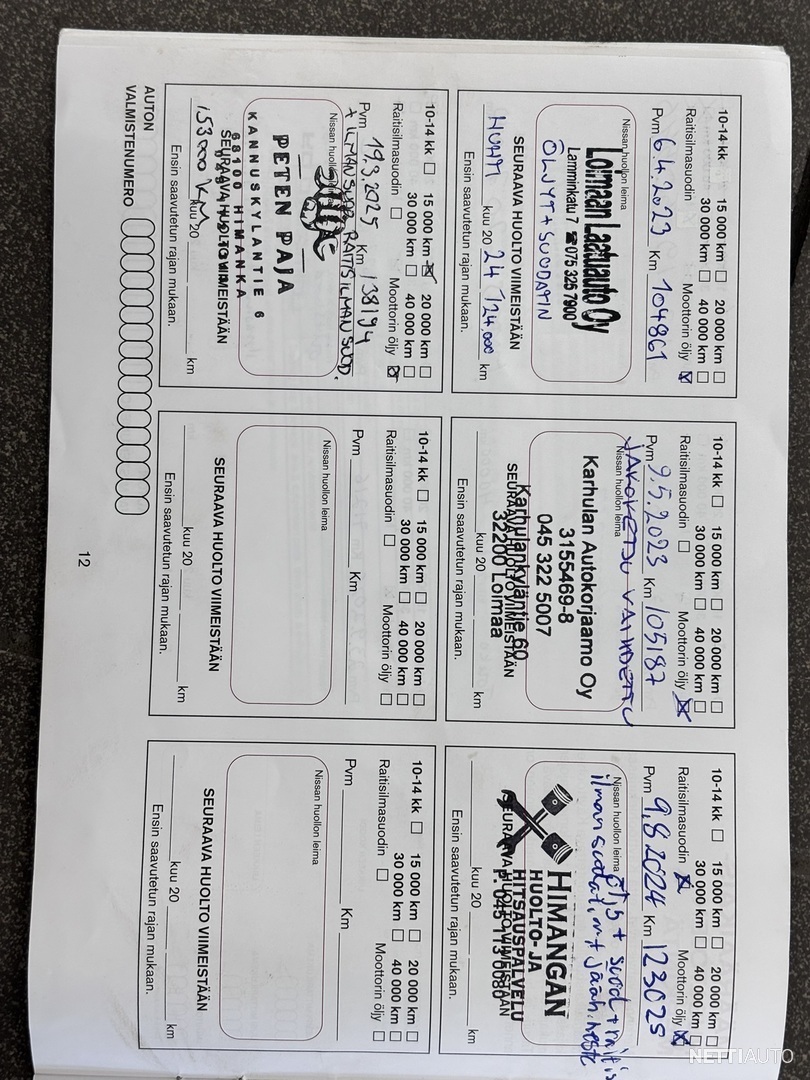 10-14 kk ☐ 15 000 km ☐ 20 000 km ☐
30 000 km ☐ 40 000 km ☐
Raitisilmasuodin Moottorin öljy ☒
Pvm 6.4.2023 Km 104861
Nissan huollon leima
Loimaan Laatuauto Oy
Lamminkatu 7 ☎ 075 326 7900
ÖLJYT + SUODATIN
SEURAAVA HUOLTO VIIMEISTÄÄN
HUHTI kuu 20 24 / 124,000 km
Ensin saavutetun rajan mukaan.
10-14 kk ☐ 15 000 km ☐ 20 000 km ☐
30 000 km ☐ 40 000 km ☐
Raitisilmasuodin ☐ Moottorin öljy ☒
Pvm 9.5.2023 Km 105187
JAKOKETJU VAIHDETTU
Nissan huollon leima
Karhulan Autokorjaamo Oy
3155469-8
045 322 5007
Karhulankyläntie 60
32200 Loimaa
SEURAAVA HUOLTO VIIMEISTÄÄN
kuu 20 km
Ensin saavutetun rajan mukaan.
10-14 kk ☐ 15 000 km ☐ 20 000 km ☐
30 000 km ☐ 40 000 km ☐
Raitisilmasuodin ☒ Moottorin öljy ☒
Pvm 9,8 2024 Km 123025
Nissan huollon leima
öljy + suod +
HIMANGAN
HUOLTO- JA
HITSAUSPALVELU
SEURAAVA HUOLTO VIIMEISTÄÄN
kuu 20 km
Ensin saavutetun rajan mukaan.
10-14 kk ☐ 15 000 km ☒ 20 000 km ☐
30 000 km ☐ 40 000 km ☐
Raitisilmasuodin ☐ Moottorin öljy ☒
Pvm 19.3.2025 Km 138194
+ ILMANSUOD, RAITISILMANSUOD.
Nissan huollon leima
PETEN PAJA
KANNUSKYLANTIE 6
68100 HIMANKA
SEURAAVA HUOLTO VIIMEISTÄÄN
153000 KM kuu 20 km
Ensin saavutetun rajan mukaan.
10-14 kk ☐ 15 000 km ☐ 20 000 km ☐
30 000 km ☐ 40 000 km ☐
Raitisilmasuodin ☐ Moottorin öljy ☐
Pvm Km
Nissan huollon leima
SEURAAVA HUOLTO VIIMEISTÄÄN
kuu 20 km
Ensin saavutetun rajan mukaan.
10-14 kk ☐ 15 000 km ☐ 20 000 km ☐
30 000 km ☐ 40 000 km ☐
Raitisilmasuodin ☐ Moottorin öljy ☐
Pvm Km
Nissan huollon leima
SEURAAVA HUOLTO VIIMEISTÄÄN
kuu 20 km
Ensin saavutetun rajan mukaan.
AUTON
VALMISTENUMERO
12
NETTIAUTO